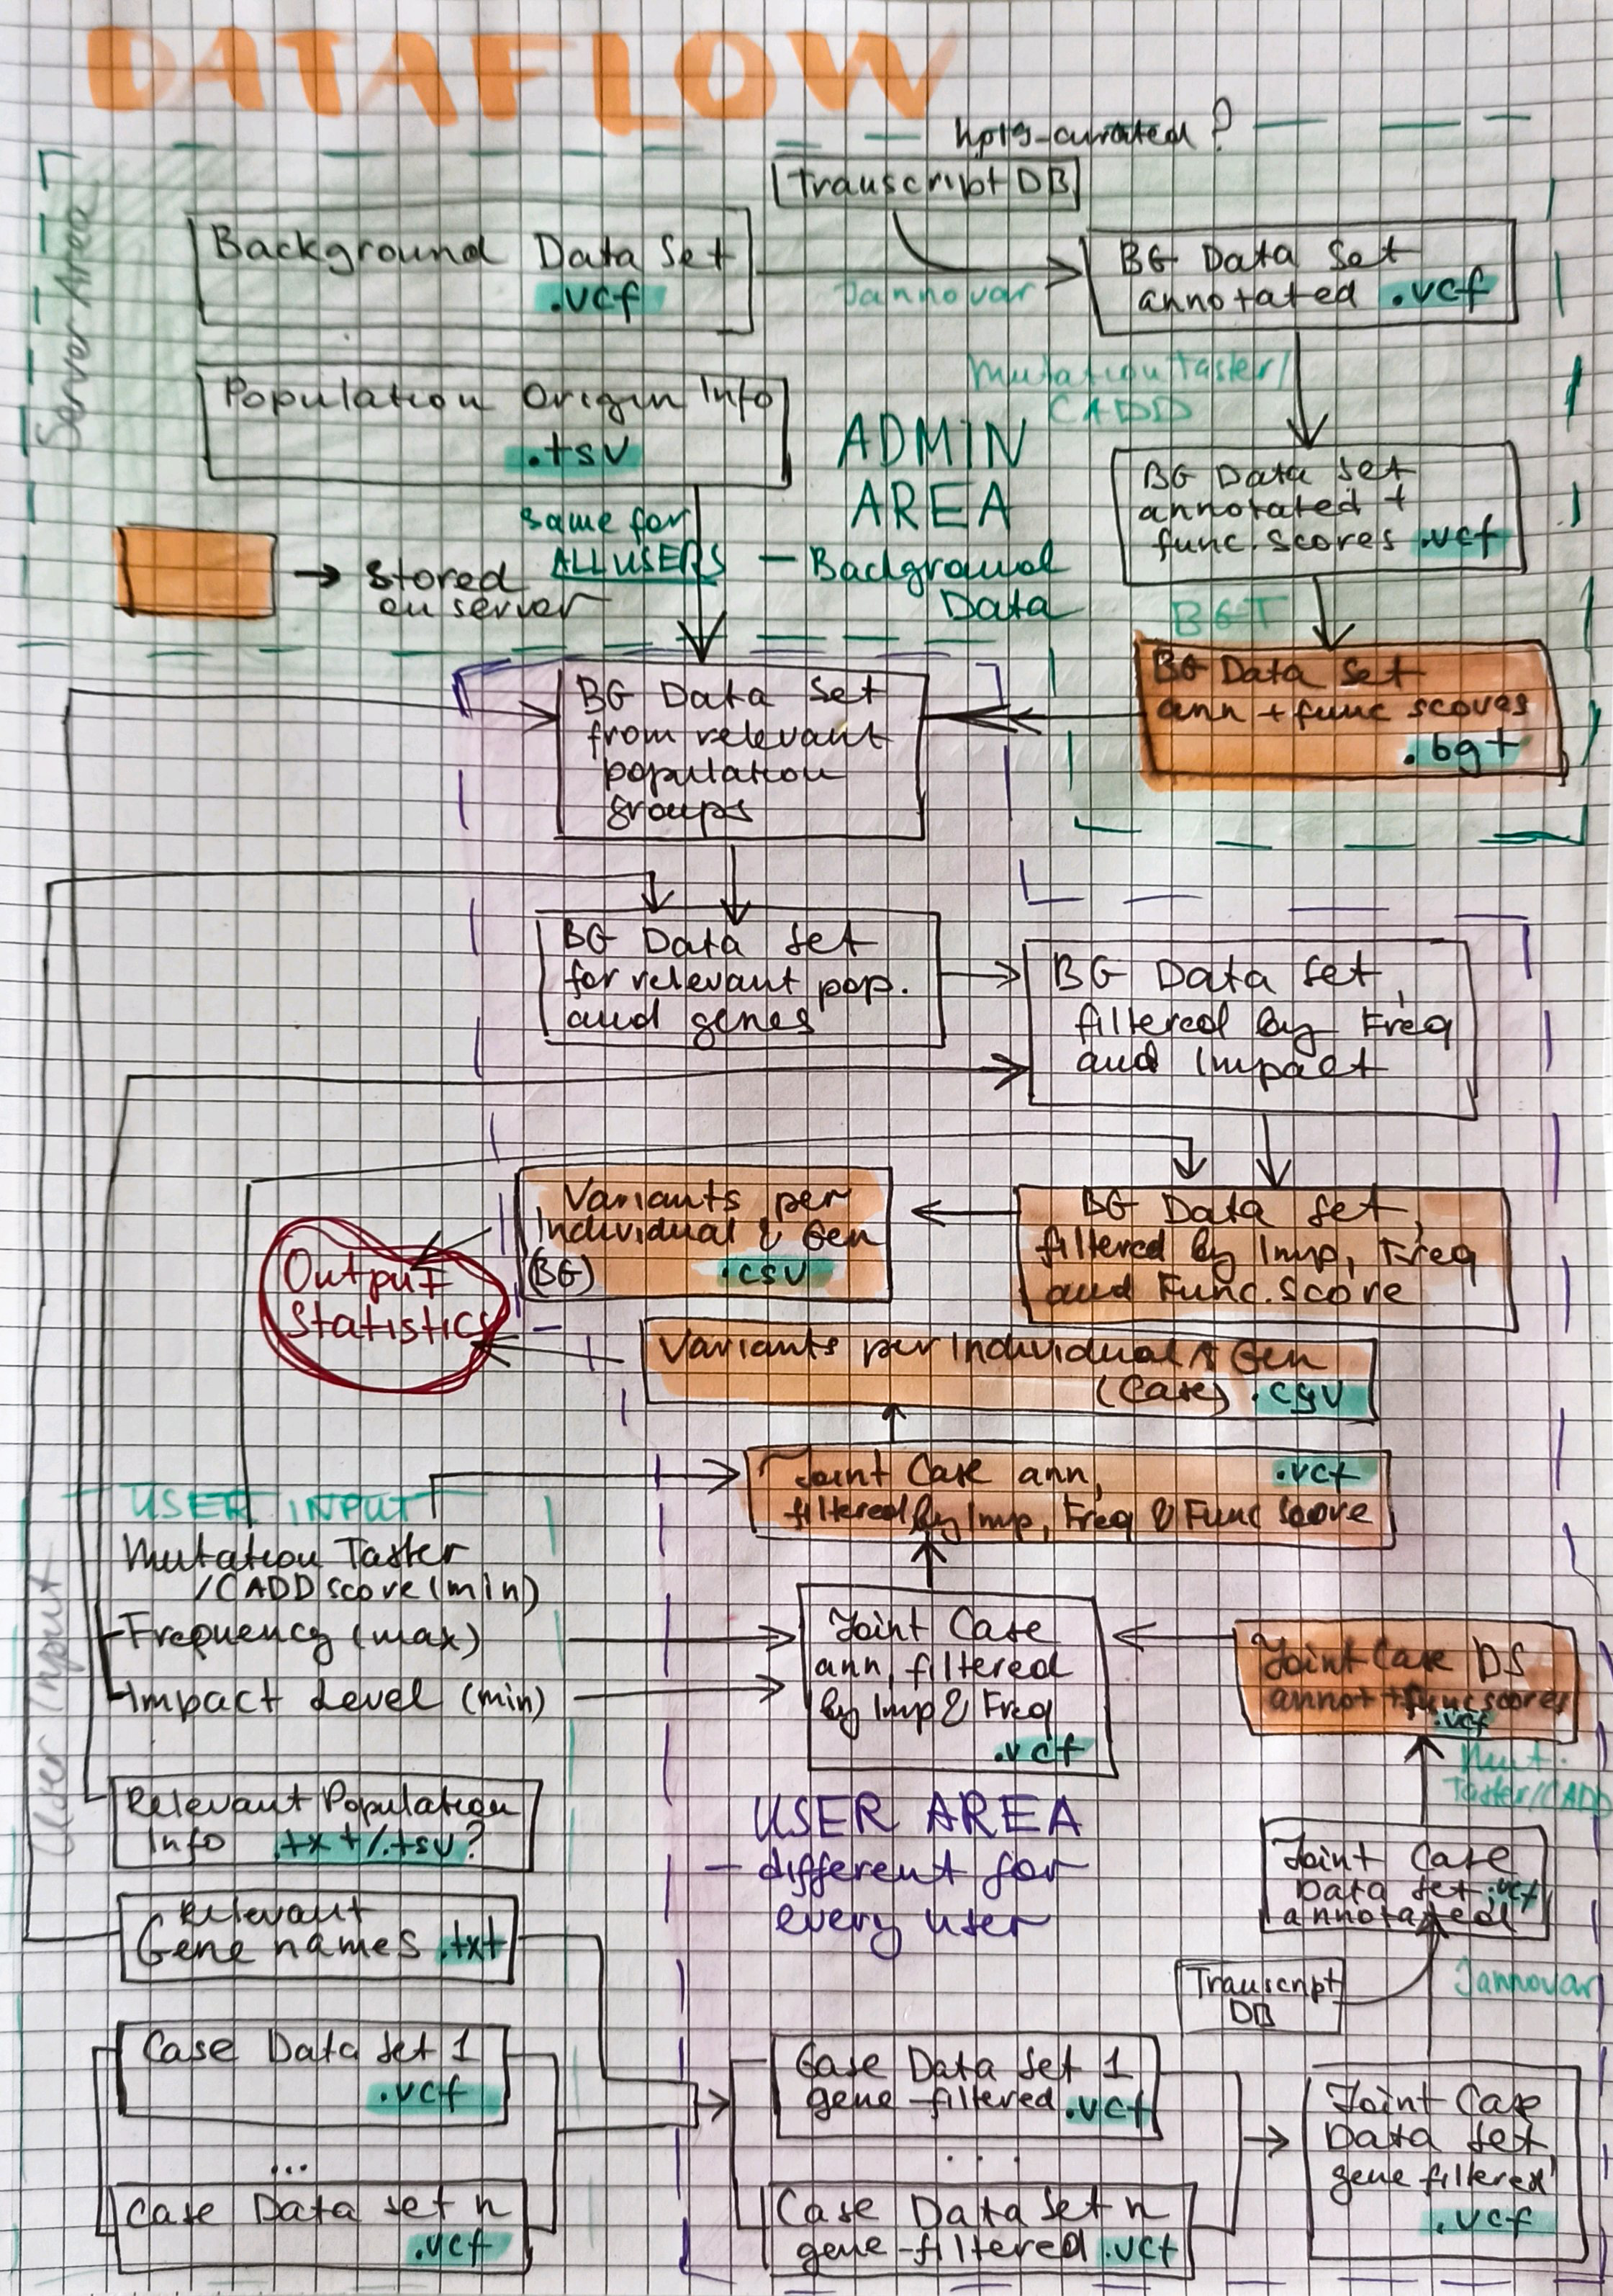 DATAFLOW
hp19-curated?
Transcript DB
Server Area
Background Data Set
.vcf
Jannovar
BG Data Set
annotated .vcf
Population Origin Info
.tsv
Mutation Taster/
CADD
ADMIN
AREA
— Background
Data
same for
ALL USERS
→ Stored
on server
BG Data Set
annotated +
func. scores .vcf
BGT
BG Data Set
ann + func scores
.bgt
BG Data Set
from relevant
population
groups
BG Data Set
for relevant pop.
and genes
BG Data Set,
filtered by Freq
and Impact
Variants per
Individual & Gen
(BG) .csv
BG Data Set,
filtered by Imp, Freq
and Func. Score
Output
Statistics
Variants per Individual & Gen
(Case) .csv
Joint Case ann, .vcf
filtered by Imp, Freq & Func Score
User Input
USER INPUT
Mutation Taster
/CADD score (min)
Frequency (max)
Impact Level (min)
Joint Case
ann, filtered
by Imp & Freq
.vcf
Joint Case DS
annot + func scores
.vcf
Mut.
Taster/CADD
Relevant Population
Info .txt/.tsv?
USER AREA
— different for
every user
Joint Case
Data Set .vcf
annotated
Relevant
Gene names .txt
Transcript
DB
Jannovar
Case Data Set 1
.vcf
...
Case Data Set n
.vcf
Case Data Set 1
gene-filtered .vcf
...
Case Data Set n
gene-filtered .vcf
Joint Case
Data Set
gene filtered
.vcf